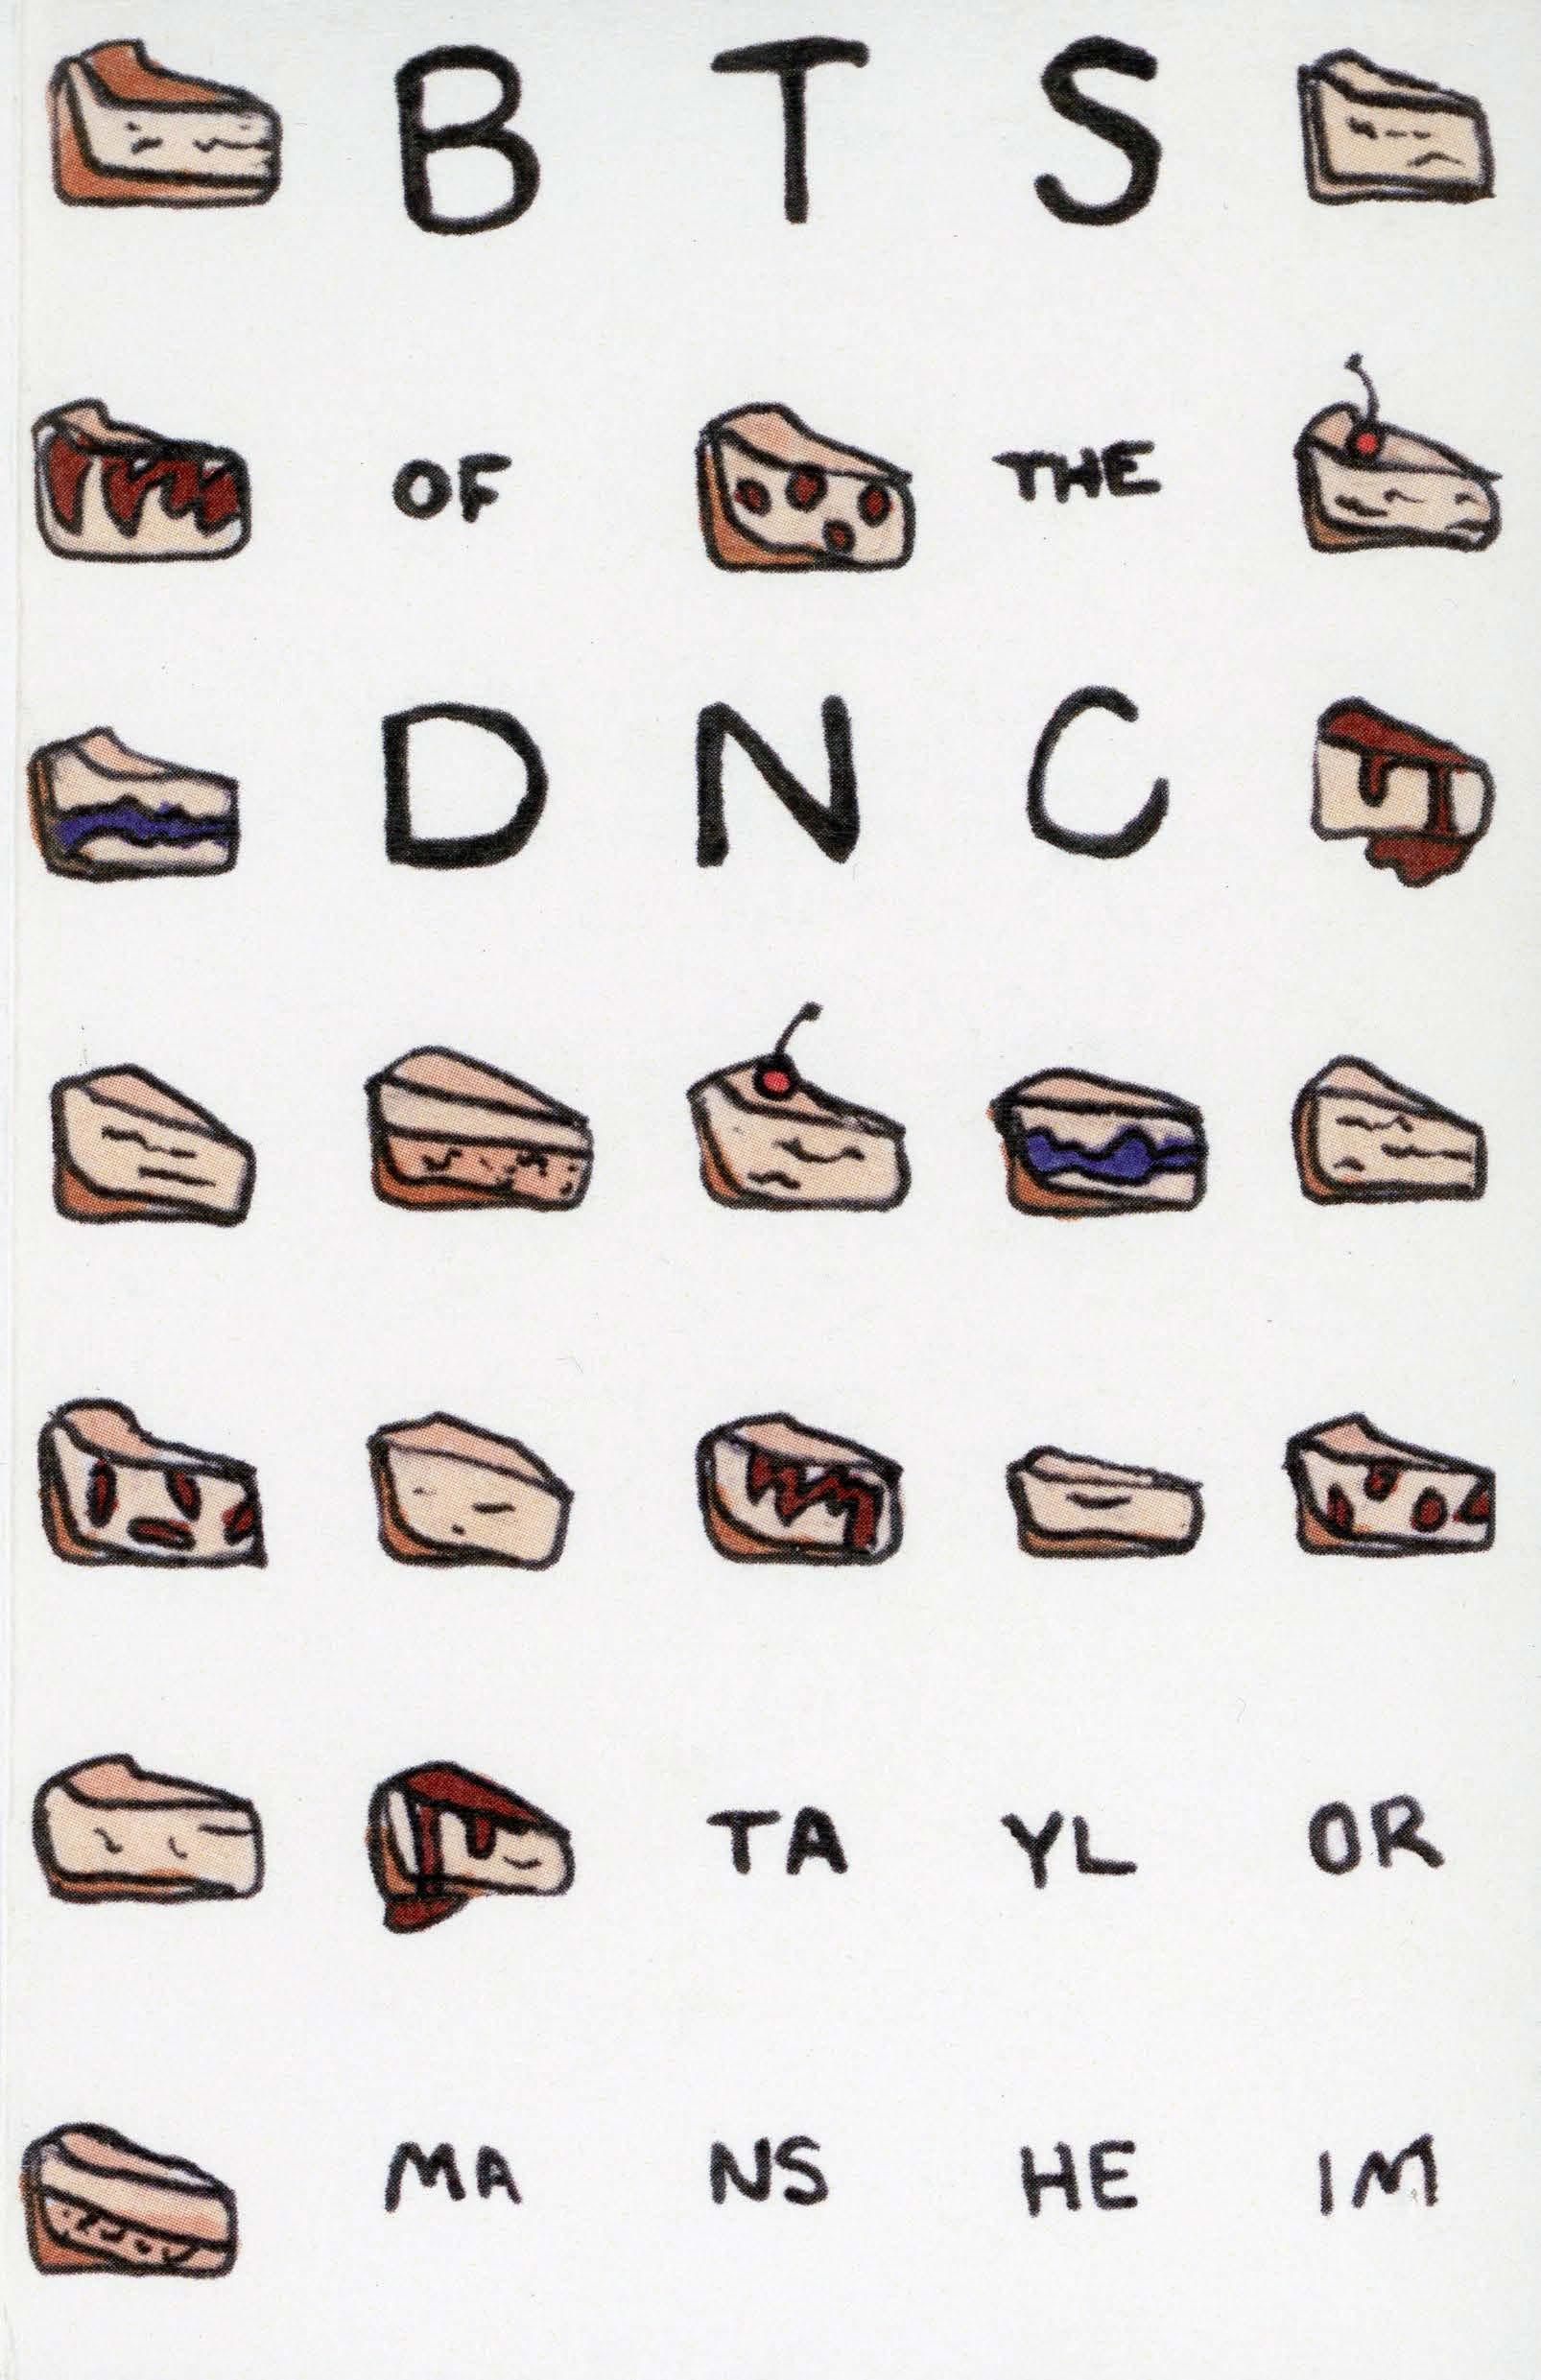 B T S
OF THE
D N C
TA YL OR
MA NS HE IM